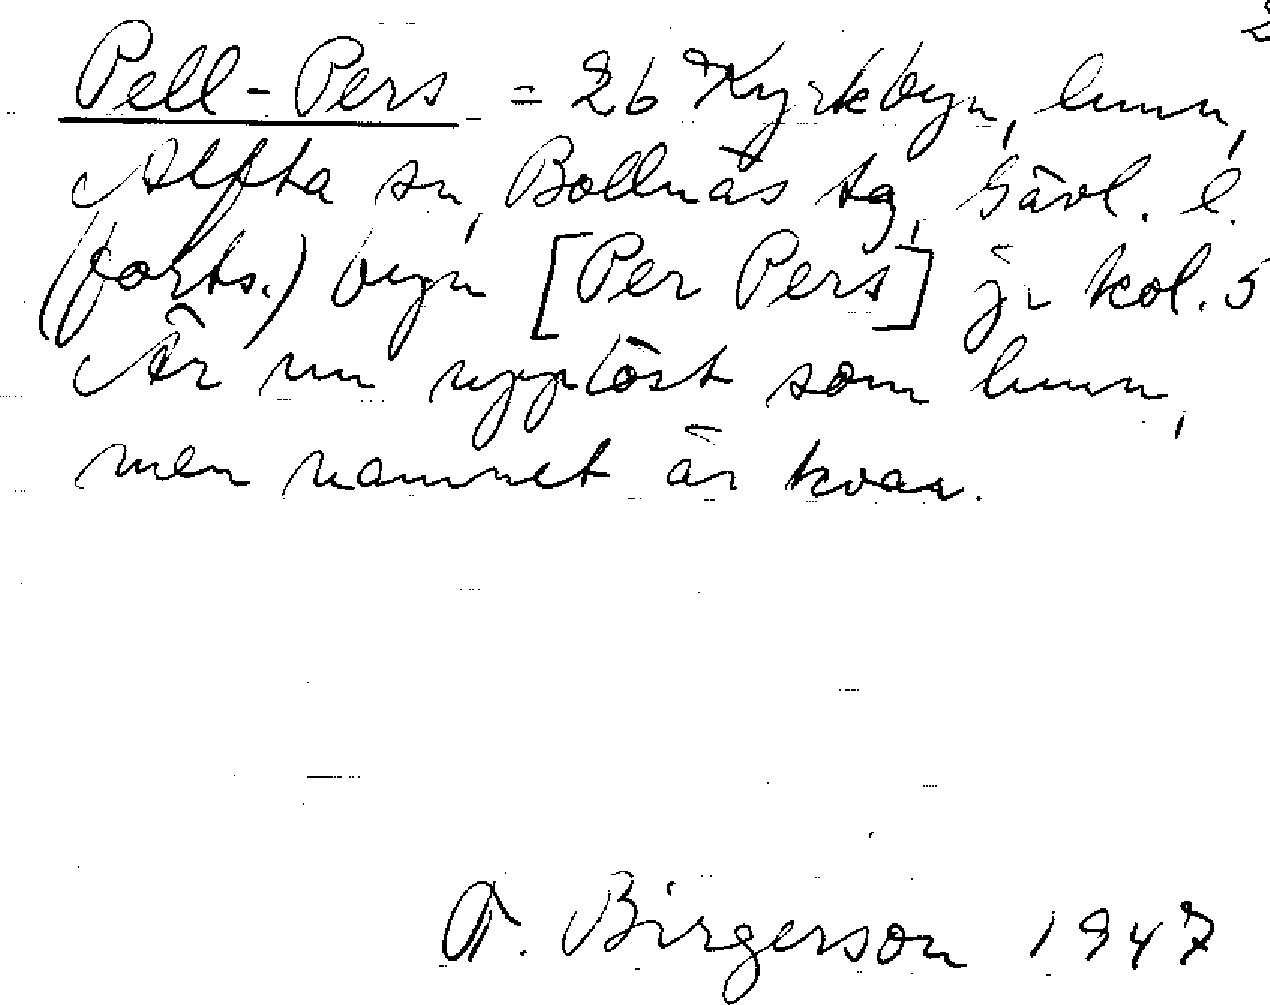 2
Pell-Pers = 26 Kyrkbyn, hmn,
Alfta sn, Bollnäs tg, Gävl. l.
(forts.) byn [Per Pers] jr kol. 5
Är nu upplöst som hmn,
men namnet är kvar.
F. Birgerson 1947